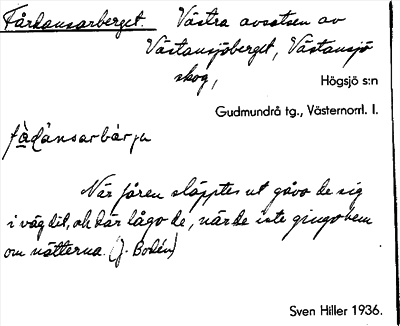 Fårdansarberget. Västra avsatsen av
Västansjöberget, Västansjö
skog,
Högsjö s:n
Gudmundrå tg., Västernorrl. l.
När fåren släpptes ut gåvo de sig
i väg dit, och där lågo de, när de inte gingo hem
om nätterna. (J. Bodén)
Sven Hiller 1936.